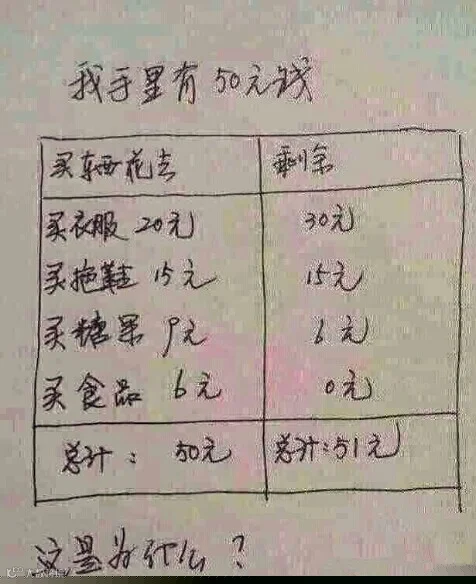 我手里有50元钱
买东西花去 剩余
买衣服 20元 30元
买拖鞋 15元 15元
买糖果 9元 6元
买食品 6元 0元
总计: 50元 总计:51元
这是为什么?